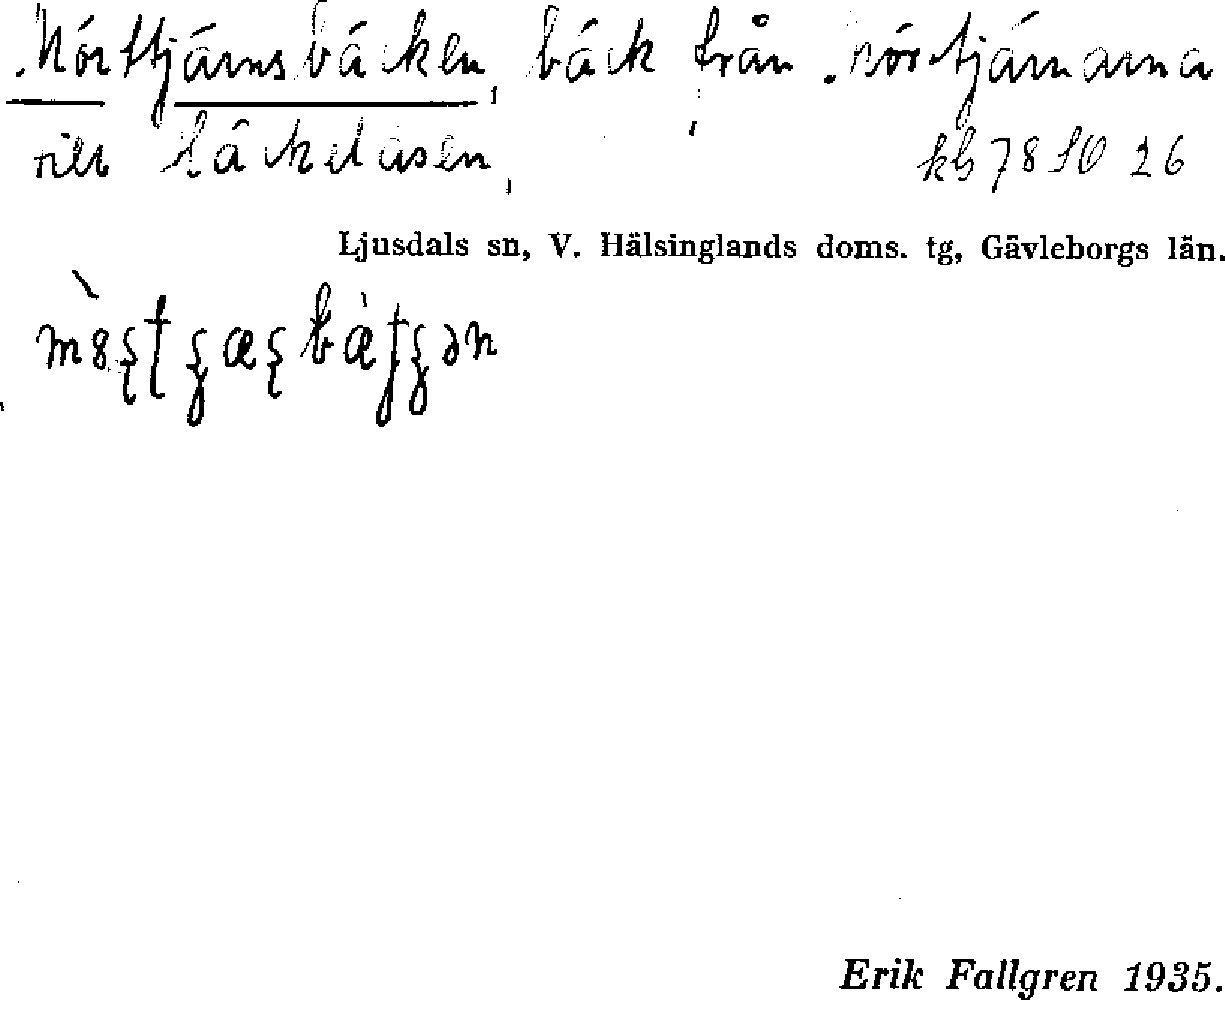 Mörttjärnsbäcken, bäck från Mörttjärnarna
till Häckelåsen,
kb 78 SO 26
Ljusdals sn, V. Hälsinglands doms. tg, Gävleborgs län.
Erik Fallgren 1935.